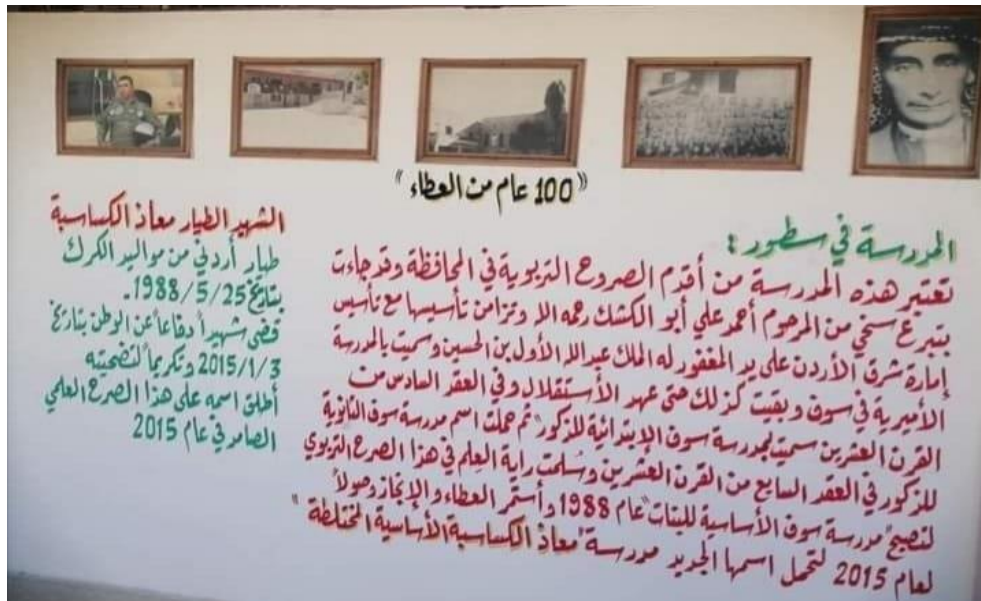 "100 عام من العطاء"
المدرسة في سطور :
تعتبر هذه المدرسة من أقدم الصروح التربوية في المحافظة وقد جاءت
بتبرع سخي من المرحوم أحمد علي أبو الكشك رحمه الله وتزامن تأسيسها مع تأسيس
إمارة شرق الأردن على يد المغفور له الملك عبدالله الأول بن الحسين وسميت بالمدرسة
الأميرية في سوف وبقيت كذلك حتى عهد الأستقلال وفي العقد السادس من
القرن العشرين سميت بمدرسة سوف الإبتدائية للذكور ثم حملت اسم مدرسة سوف الثانوية
للذكور في العقد السابع من القرن العشرين وسُلمت راية العِلم في هذا الصرح التربوي
لتصبح "مدرسة سوف الأساسية للبنات" عام 1988 وأستمر العطاء والإنجاز وصولاً
لعام 2015 لتحمل اسمها الجديد مدرسة "معاذ الكساسبة الأساسية المختلطة"
الشهيد الطيار معاذ الكساسبة
طيار أردني من مواليد الكرك
بتاريخ 1988/5/25.
قضى شهيداً دفاعاً عن الوطن بتاريخ
2015/1/3 وتكريماً لتضحيته
أطلق اسمه على هذا الصرح العلمي
الصامد في عام 2015